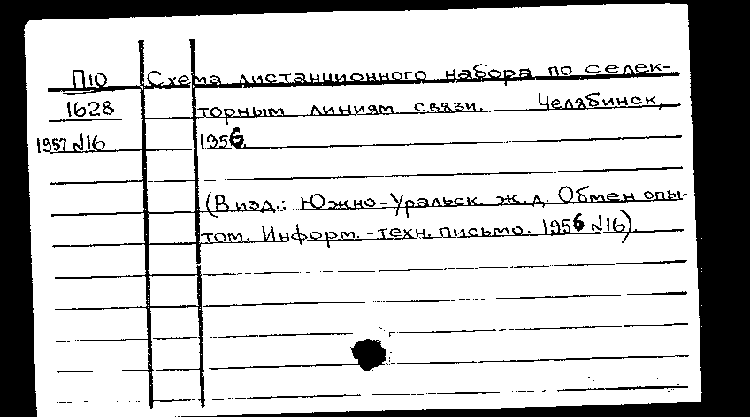 П10 Схема дистанционного набора по селек-
1628 торным линиям связи. Челябинск,
1957 №16 1956.
(В изд.: Южно-Уральск. ж.д. Обмен опы-
том. Информ.-техн. письмо. 1956 №16).